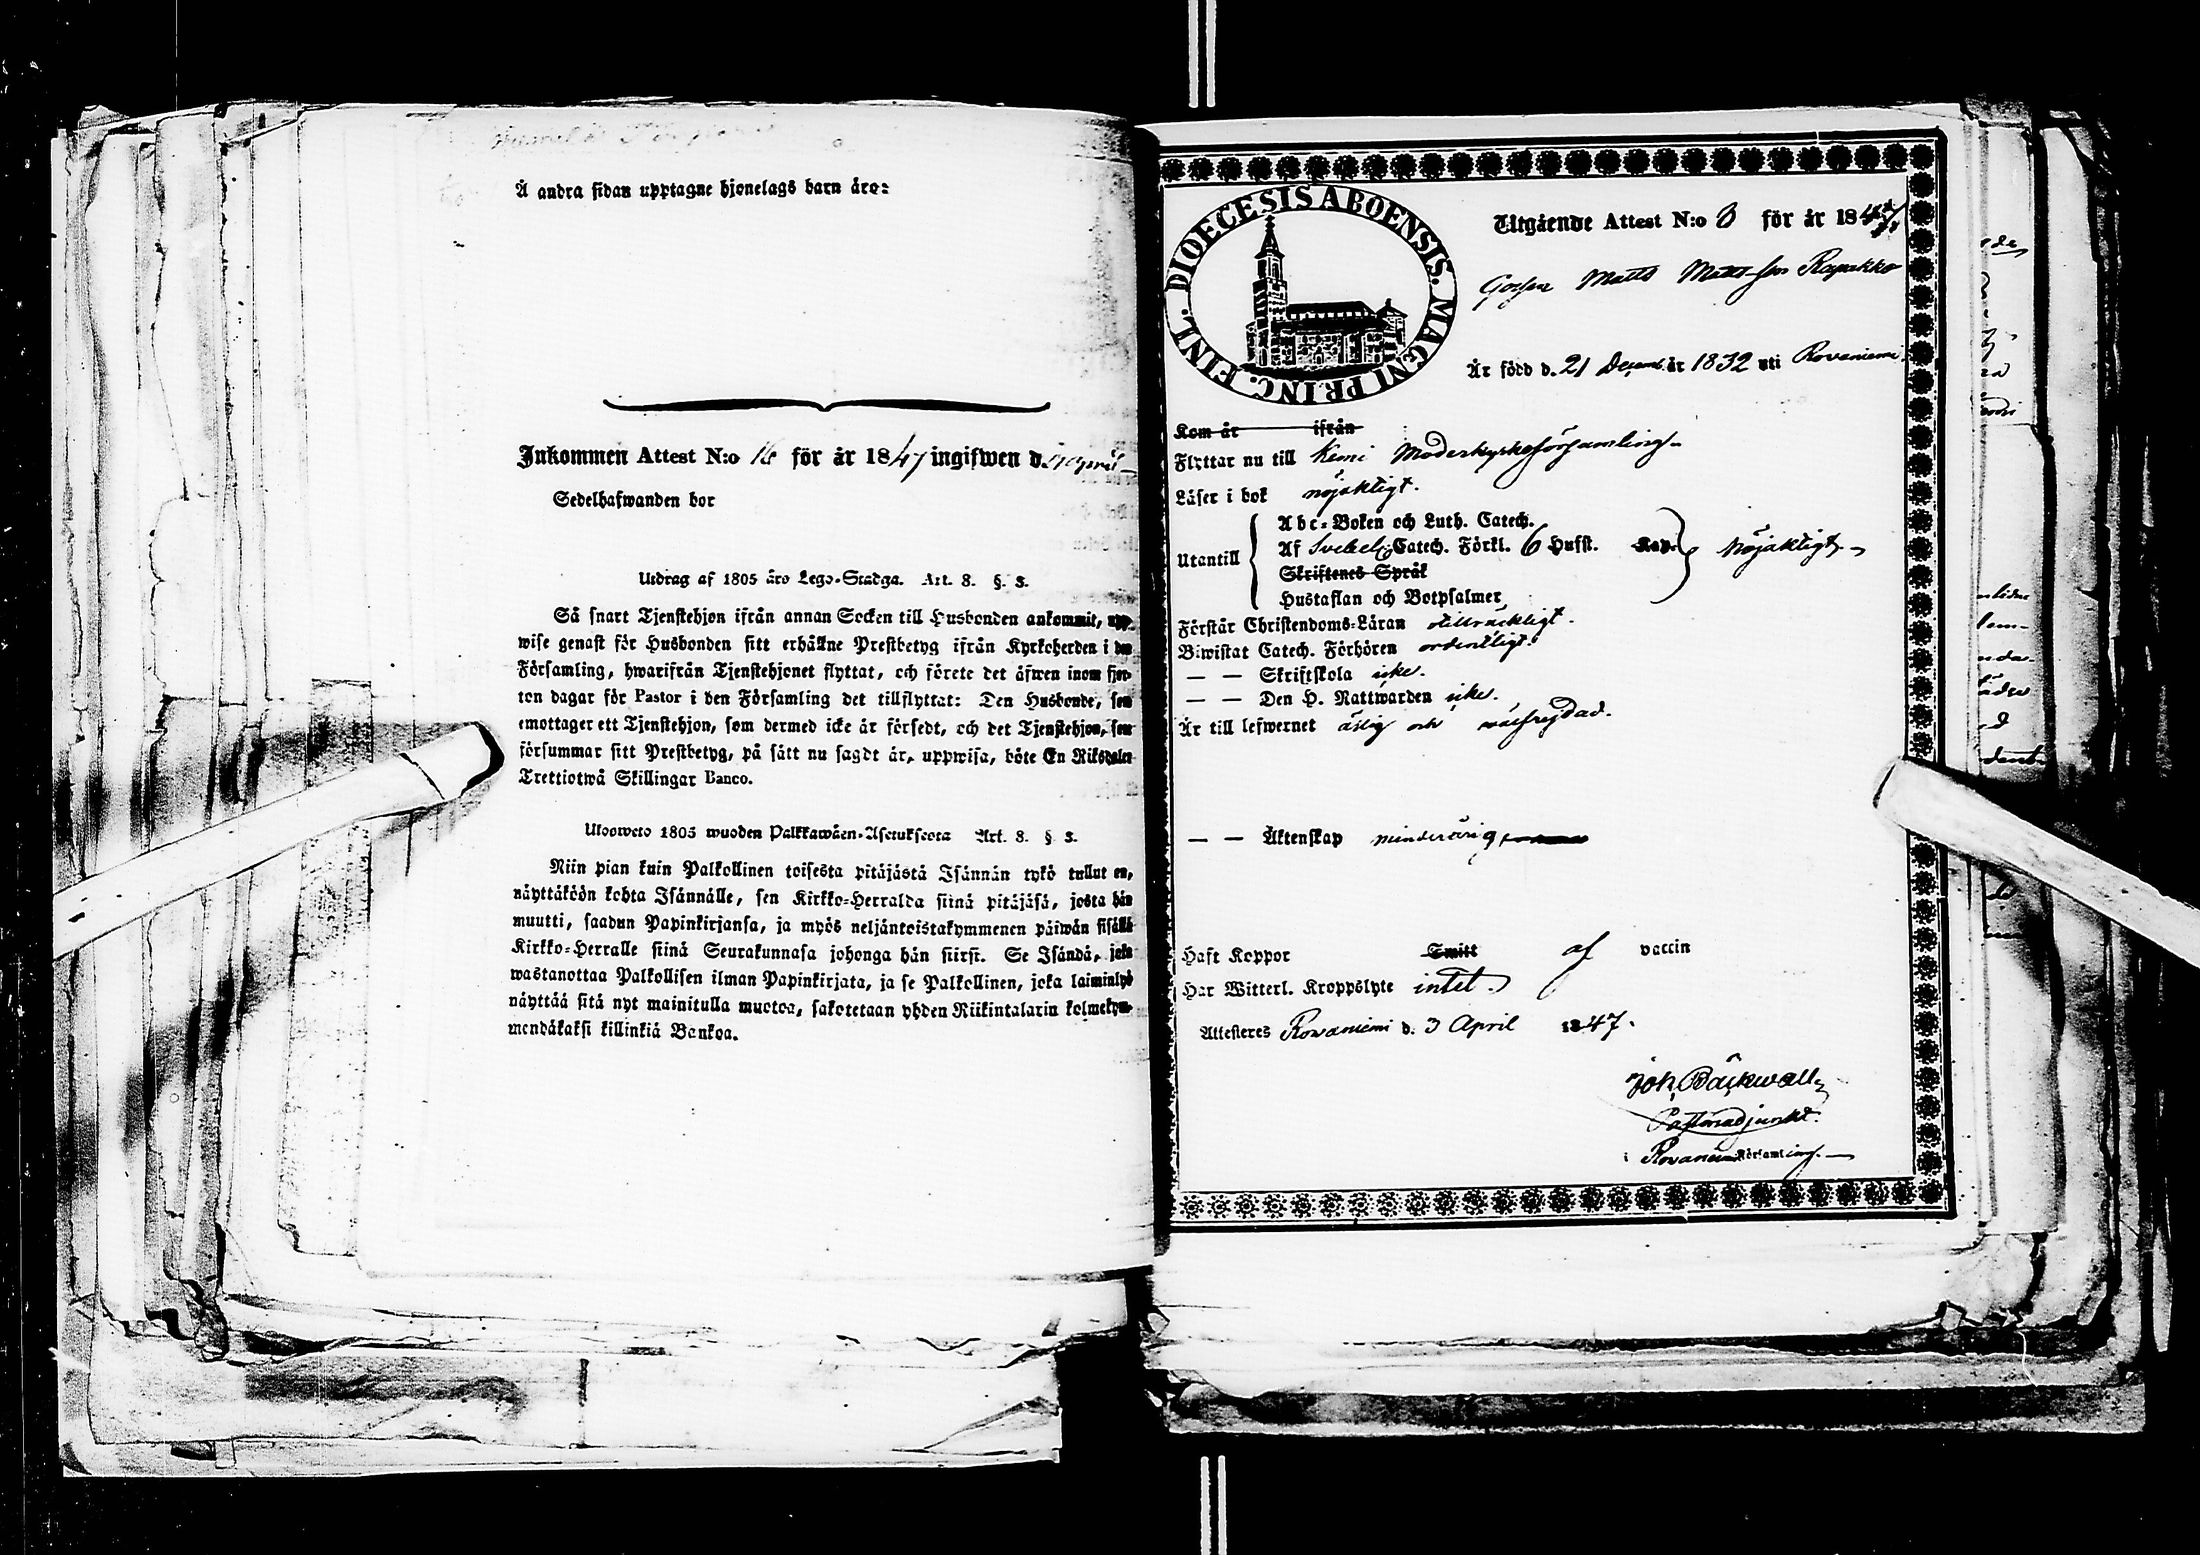 Å andra sidan upptagne hjonelags barn äro:
Inkommen Attest N:o 16 för år 1847 ingifwen d.
Sedelhafwanden bor
Utdrag af 1805 års Lego-Stadga. Art. 8. §. 3.
Så snart Tjenstehjon ifrån annan Socken till Husbonden ankommit, upp-
wise genast för Husbonden sitt erhållne Prestbetyg ifrån Kyrkoherden i den
Församling, hwarifrån Tjenstehjonet flyttat, och förete det äfwen inom fjor-
ton dagar för Pastor i den Församling det tillflyttat: Den Husbonde, som
emottager ett Tjenstehjon, som dermed icke är försedt, och det Tjenstehjon, som
försummar sitt Prestbetyg, på sätt nu sagdt är, uppwisa, böte En Riksdaler
Trettiotwå Skillingar Banco.
Ulosweto 1805 wuoden Palkkawäen-Asetuksesta Art. 8. §. 3.
Niin pian kuin Palkollinen toisesta pitäjästä Isännän tykö tullut on,
näyttäköön kohta Isännälle, sen Kirkko-Herralda siinä pitäjäsä, josta hän
muutti, saadun Papinkirjansa, ja myös neljäntoistakymmenen päiwän sisällä
Kirkko-Herralle siinä Seurakunnasa johonga hän siirsi. Se Isändä, joka
wastanottaa Palkollisen ilman Papinkirjata, ja se Palkollinen, joka laiminlyö
näyttää sitä nyt mainitulla muotoa, sakotetaan yhden Riikintalarin kolmekym-
mendäkaksi killinkiä Bankoa.
DIOECESIS ABOENSIS. MAGNI PRINC. FINL.
Utgående Attest N:o 3 för år 1847
Gossen Matts Matts-son Rapakko
Är född d. 21 Decemb. år 1832 uti Rovaniemi
Kom år ifrån
Flyttar nu till Kemi Moderkyrkoförsamling
Läser i bok nöjaktigt.
Abc-Boken och Luth. Catech.
Utantill Af Svebelii Catech. Förkl. 6 Hufst. Kap. Nöjaktigt
Skriftenes Språk
Hustaflan och Botpsalmer
Förstår Christendoms-Läran tillräckligt.
Biwistat Catech. Förhören ordentligt.
— — Skriftskola icke.
— — Den H. Nattwarden icke.
Är till lefwernet ärlig och wälfrejdad.
— — Äktenskap minderårig
Haft Koppor Smitt af vaccin
Har Witterl. Kroppslyte intet.
Attesteres Rovaniemi d. 3 April 1847.
Joh. Bäckwall
Pastorsadjunkt.
i Rovaniemi Församling.